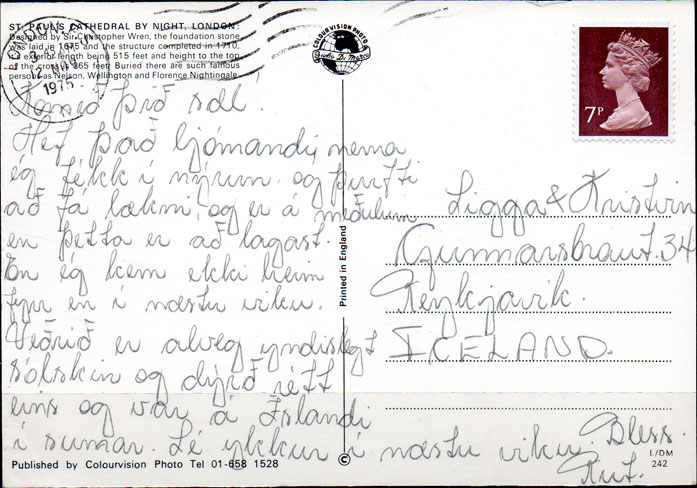 ST. PAUL'S CATHEDRAL BY NIGHT, LONDON.
Designed by Sir Christopher Wren, the foundation stone
was laid in 1675 and the structure completed in 1710,
its exterior length being 515 feet and height to the top
of the cross 365 feet. Buried there are such famous
persons as Nelson, Wellington and Florence Nightingale.
LONDON
1975
COLOURVISION PHOTO
7P
Komið þið sæl!
Hef það ljómandi, nema
ég fékk í nýrun og þurfti
að fá lækni og er á meðulum
en þetta er að lagast.
En ég kem ekki heim
fyrr en í næstu viku.
Veðrið er alveg yndislegt
sólskin og dýrð rétt
eins og var á Íslandi
í sumar. Sé ykkur í næstu viku. Bless.
Rut.
Sigga & Kristvin
Gunnarsbraut 34
Reykjavik.
ICELAND.
Printed in England
Published by Colourvision Photo Tel 01-658 1528
©
L/DM
242